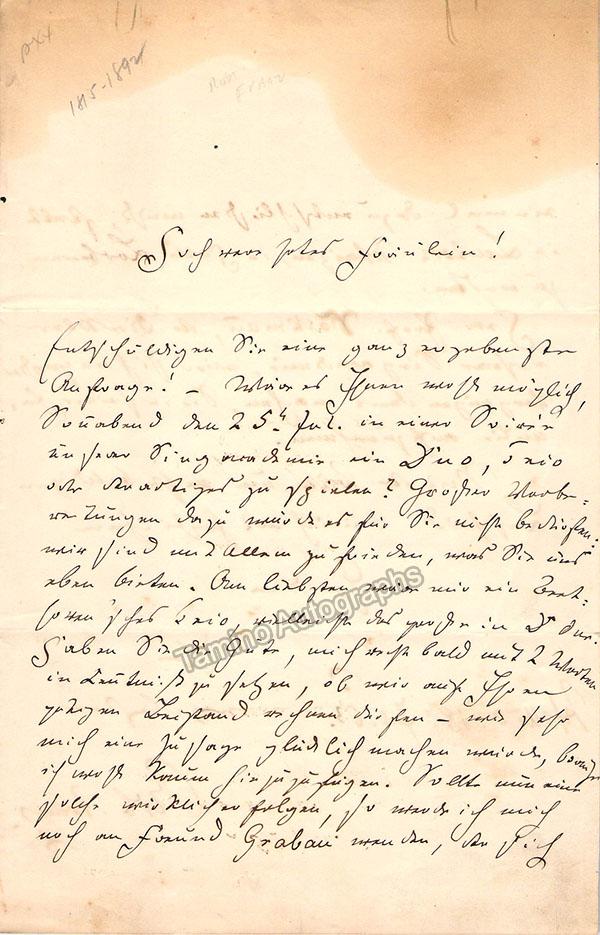 1815-1892
Hochverehrtes Fräulein!
Entschuldigen Sie eine ganz ergebenste
Anfrage! – Wäre es Ihnen wohl möglich,
Sonnabend den 25t Jul. in einer Soirée
unserer Singacademie ein Duo, Trio
oder derartiges zu spielen? Großer Vorbe-
reitungen dazu würde es für Sie nicht bedürfen:
wir sind mit Allem zufrieden, was Sie uns
eben bieten. Am liebsten wäre mir ein Beet-
hoven'sches Trio, vielleicht das große in D dur.
Haben Sie die Güte, mich recht bald mit 2 Worten
in Kenntniß zu setzen, ob wir auf Ihren
gütigen Beistand rechnen dürfen – wie sehr
mich eine Zusage glücklich machen würde, brauche
ich wohl kaum hinzuzufügen. Sollte nun eine
solche wirklich erfolgen, so werde ich mich
noch an Freund Grabau wenden, der sich
Tamino Autographs